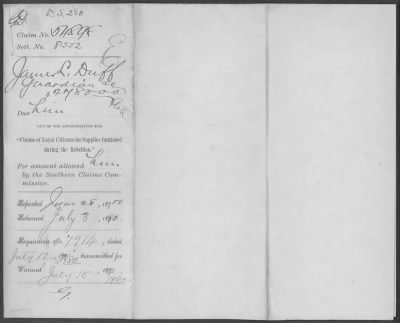 D.S. 280
Claim No.
Sett. No. 8552
E
James L. Duff
Guardian &c
$2780.00
Due him
OUT OF THE APPROPRIATION FOR
"Claims of Loyal Citizens for Supplies furnished
during the Rebellion."
For amount allowed him
by the Southern Claims Com-
mission.
Reported June 28, 1880
Returned July 3, 1880.
Requisition No. 7914, dated
July 12 1880, transmitted for
Warrant July 15, 187
1880